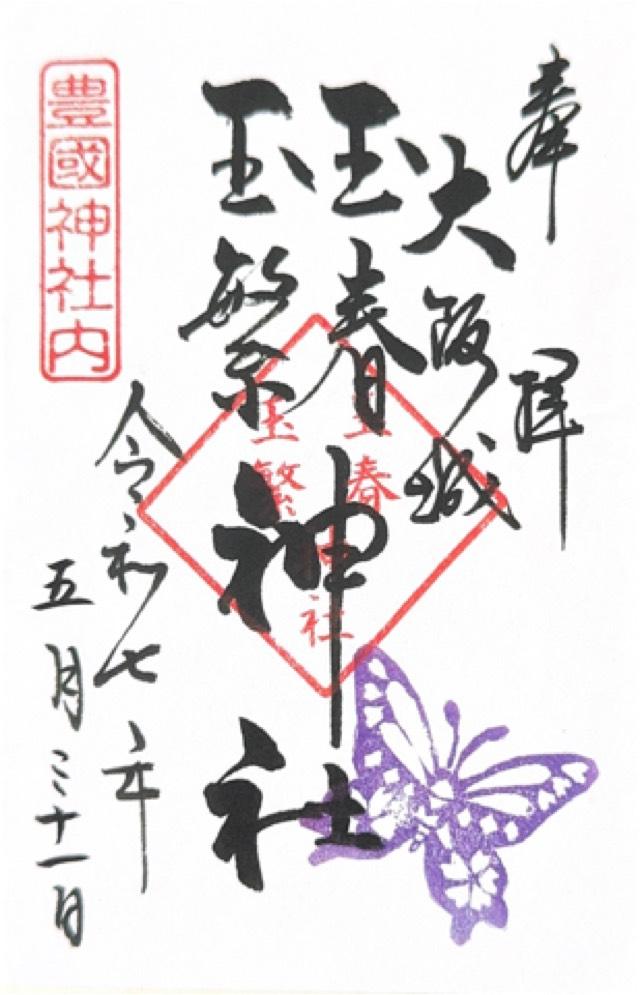 奉拝
大阪城
玉春
玉繁
神社
玉春
玉繁
神社
令和七年
五月三十一日
豊國神社内